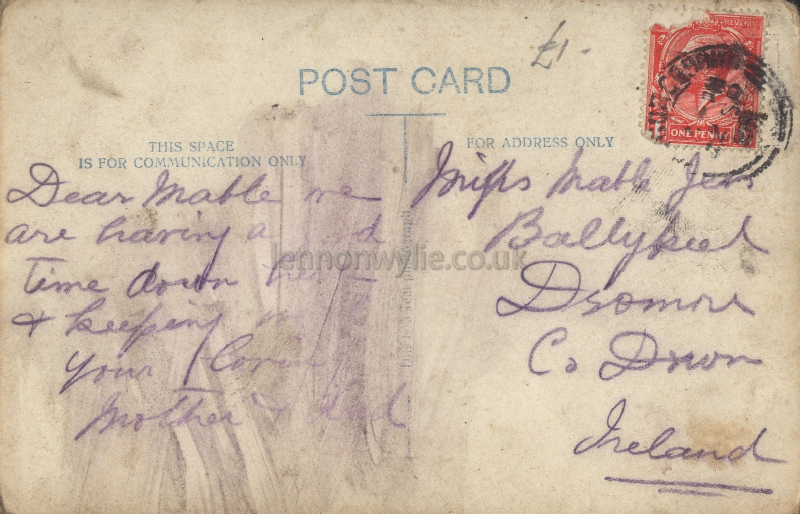 £1-
POST CARD
THIS SPACE
IS FOR COMMUNICATION ONLY
FOR ADDRESS ONLY
REVENUE
ONE PENNY
Dear Mable we
are having a
time down
& keeping
your
Mother & Dad
Miss Mable
Ballykeel
Dromore
Co Down
Ireland
lennonwylie.co.uk